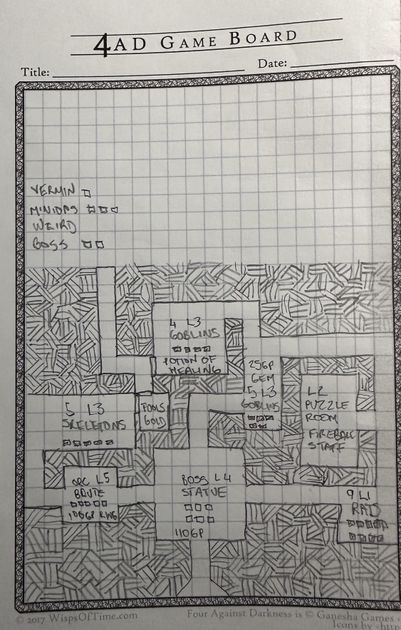 4AD GAME BOARD
Title:
Date:
VERMIN
MINIONS
WEIRD
BOSS
4 L3
GOBLINS
POTION OF
HEALING
25GP
GEM
5 L3
GOBLINS
L2
PUZZLE
ROOM
FIREBALL
STAFF
5 L3
SKELETONS
FOOLS
GOLD
ORC L5
BRUTE
BOSS L4
STATUE
110GP
9 L1
RATS
© 2017 WispsOfTime.com
Four Against Darkness is © Ganesha Games
Icons by